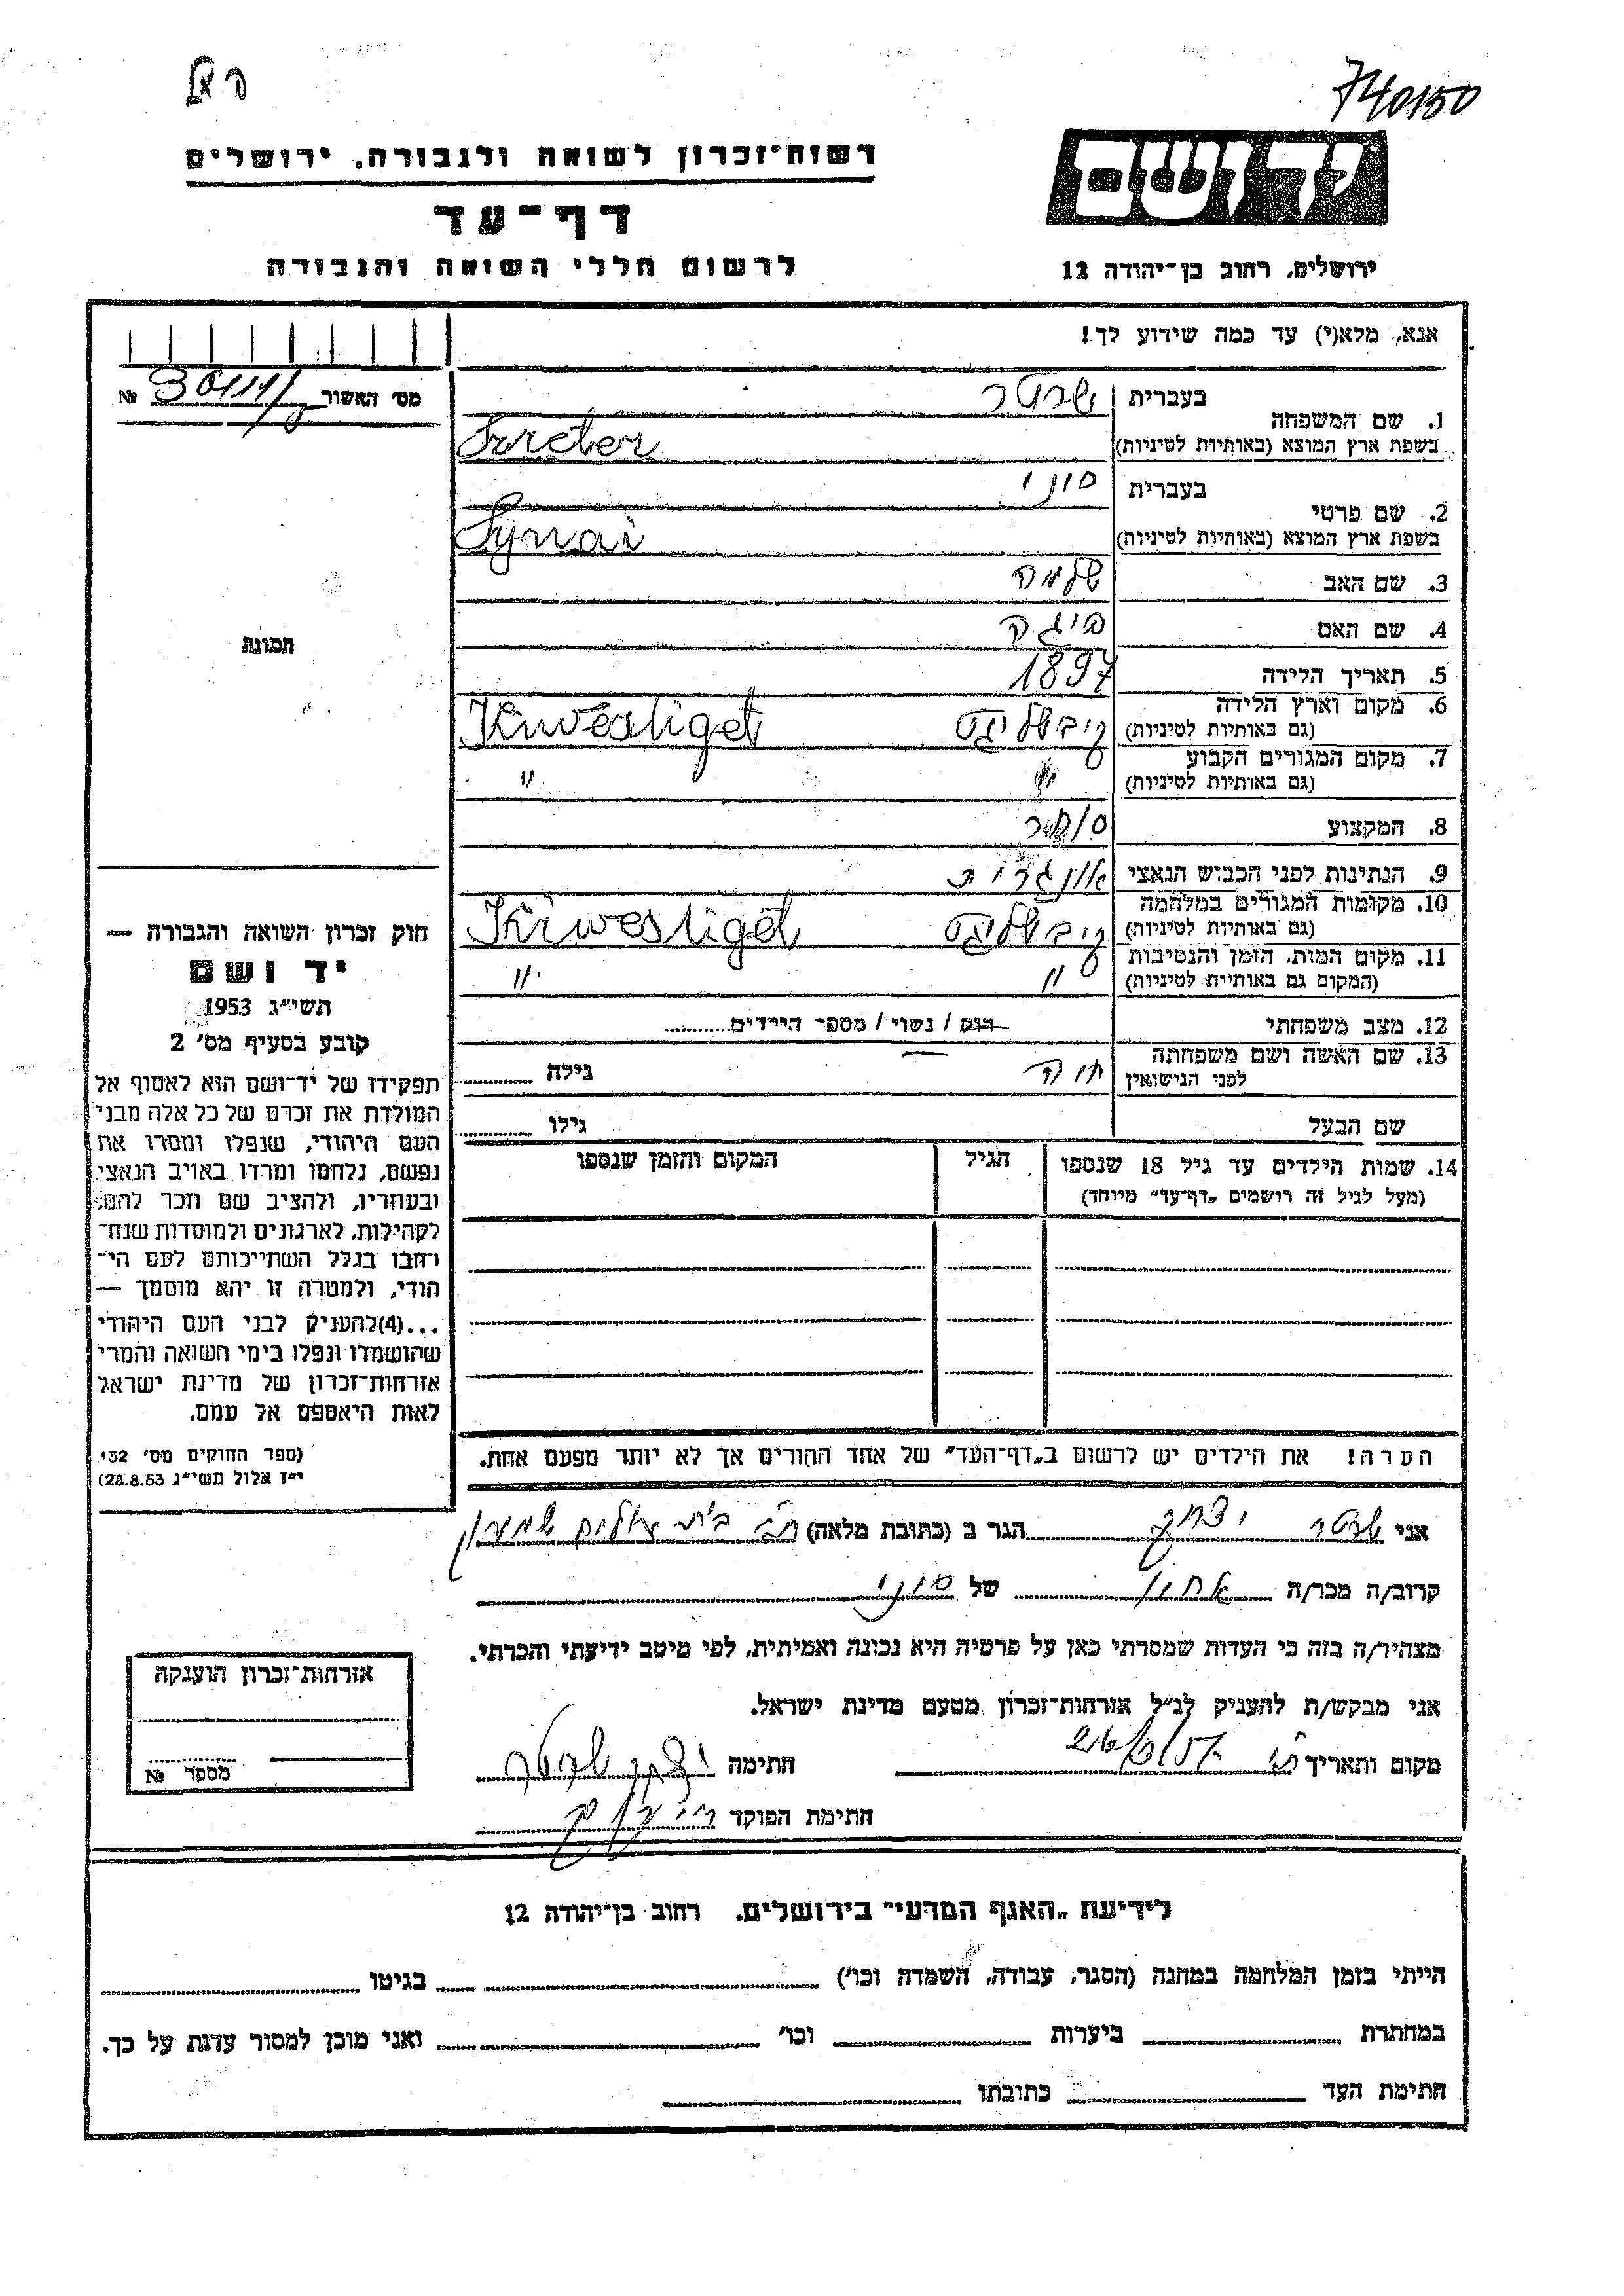 740150
רשות־זכרון לשואה ולגבורה, ירושלים
דף־עד
לרשום חללי השואה והגבורה
יד ושם
ירושלים, רחוב בן־יהודה 12
אנא, מלא(י) עד כמה שידוע לך!
מס׳ האשור №
תמונה
1. שם המשפחה
בעברית שרטר
בשפת ארץ המוצא (באותיות לטיניות)
2. שם פרטי
בעברית סוני
בשפת ארץ המוצא (באותיות לטיניות) Synai
3. שם האב שלמה
4. שם האם פיגה
5. תאריך הלידה 1897
6. מקום וארץ הלידה
(גם באותיות לטיניות) Kiwesliget
7. מקום המגורים הקבוע
(גם באותיות לטיניות) 〃 〃
8. המקצוע סוחר
9. הנתינות לפני הכבוש הנאצי אונגרית
10. מקומות המגורים במלחמה
(גם באותיות לטיניות) Kiwesliget
11. מקום המות, הזמן והנסיבות
(המקום גם באותיות לטיניות) 〃 〃
12. מצב משפחתי רווק / נשוי / מספר הילדים
13. שם האשה ושם משפחתה
לפני הנישואין חוה גילה
שם הבעל גילו
14. שמות הילדים עד גיל 18 שנספו
(מעל לגיל זה רושמים „דף־עד” מיוחד)
הגיל
המקום והזמן שנספו
הערה! את הילדים יש לרשום ב„דף־העד” של אחד ההורים אך לא יותר מפעם אחת.
חוק זכרון השואה והגבורה —
יד ושם
תשי״ג 1953
קובע בסעיף מס׳ 2
תפקידו של יד־ושם הוא לאסוף אל
המולדת את זכרם של כל אלה מבני
העם היהודי, שנפלו ומסרו את
נפשם, נלחמו ומרדו באויב הנאצי
ובעוזריו, ולהציב שם וזכר להם,
לקהילות, לארגונים ולמוסדות שנח־
רבו בגלל השתייכותם לעם הי־
הודי, ולמטרה זו יהא מוסמך —
...(4)להעניק לבני העם היהודי
שהושמדו ונפלו בימי השואה והמרי
אזרחות־זכרון של מדינת ישראל
לאות היאספם אל עמם.
(ספר החוקים מס׳ 132,
י״ז אלול תשי״ג 28.8.53)
אני שרטר יצחק הגר ב (כתובת מלאה)
קרוב/ה מכר/ה של סוני
מצהיר/ה בזה כי העדות שמסרתי כאן על פרטיה היא נכונה ואמיתית, לפי מיטב ידיעתי והכרתי.
אני מבקש/ת להעניק לנ״ל אזרחות־זכרון מטעם מדינת ישראל.
מקום ותאריך חתימה יצחק שרטר
חתימת הפוקד
אזרחות־זכרון הוענקה
מספר №
לידיעת „האגף המדעי” בירושלים, רחוב בן־יהודה 12
הייתי בזמן המלחמה במחנה (הסגר, עבודה, השמדה וכו׳) בגיטו
במחתרת ביערות וכו׳ ואני מוכן למסור עדות על כך.
חתימת העד כתובתו